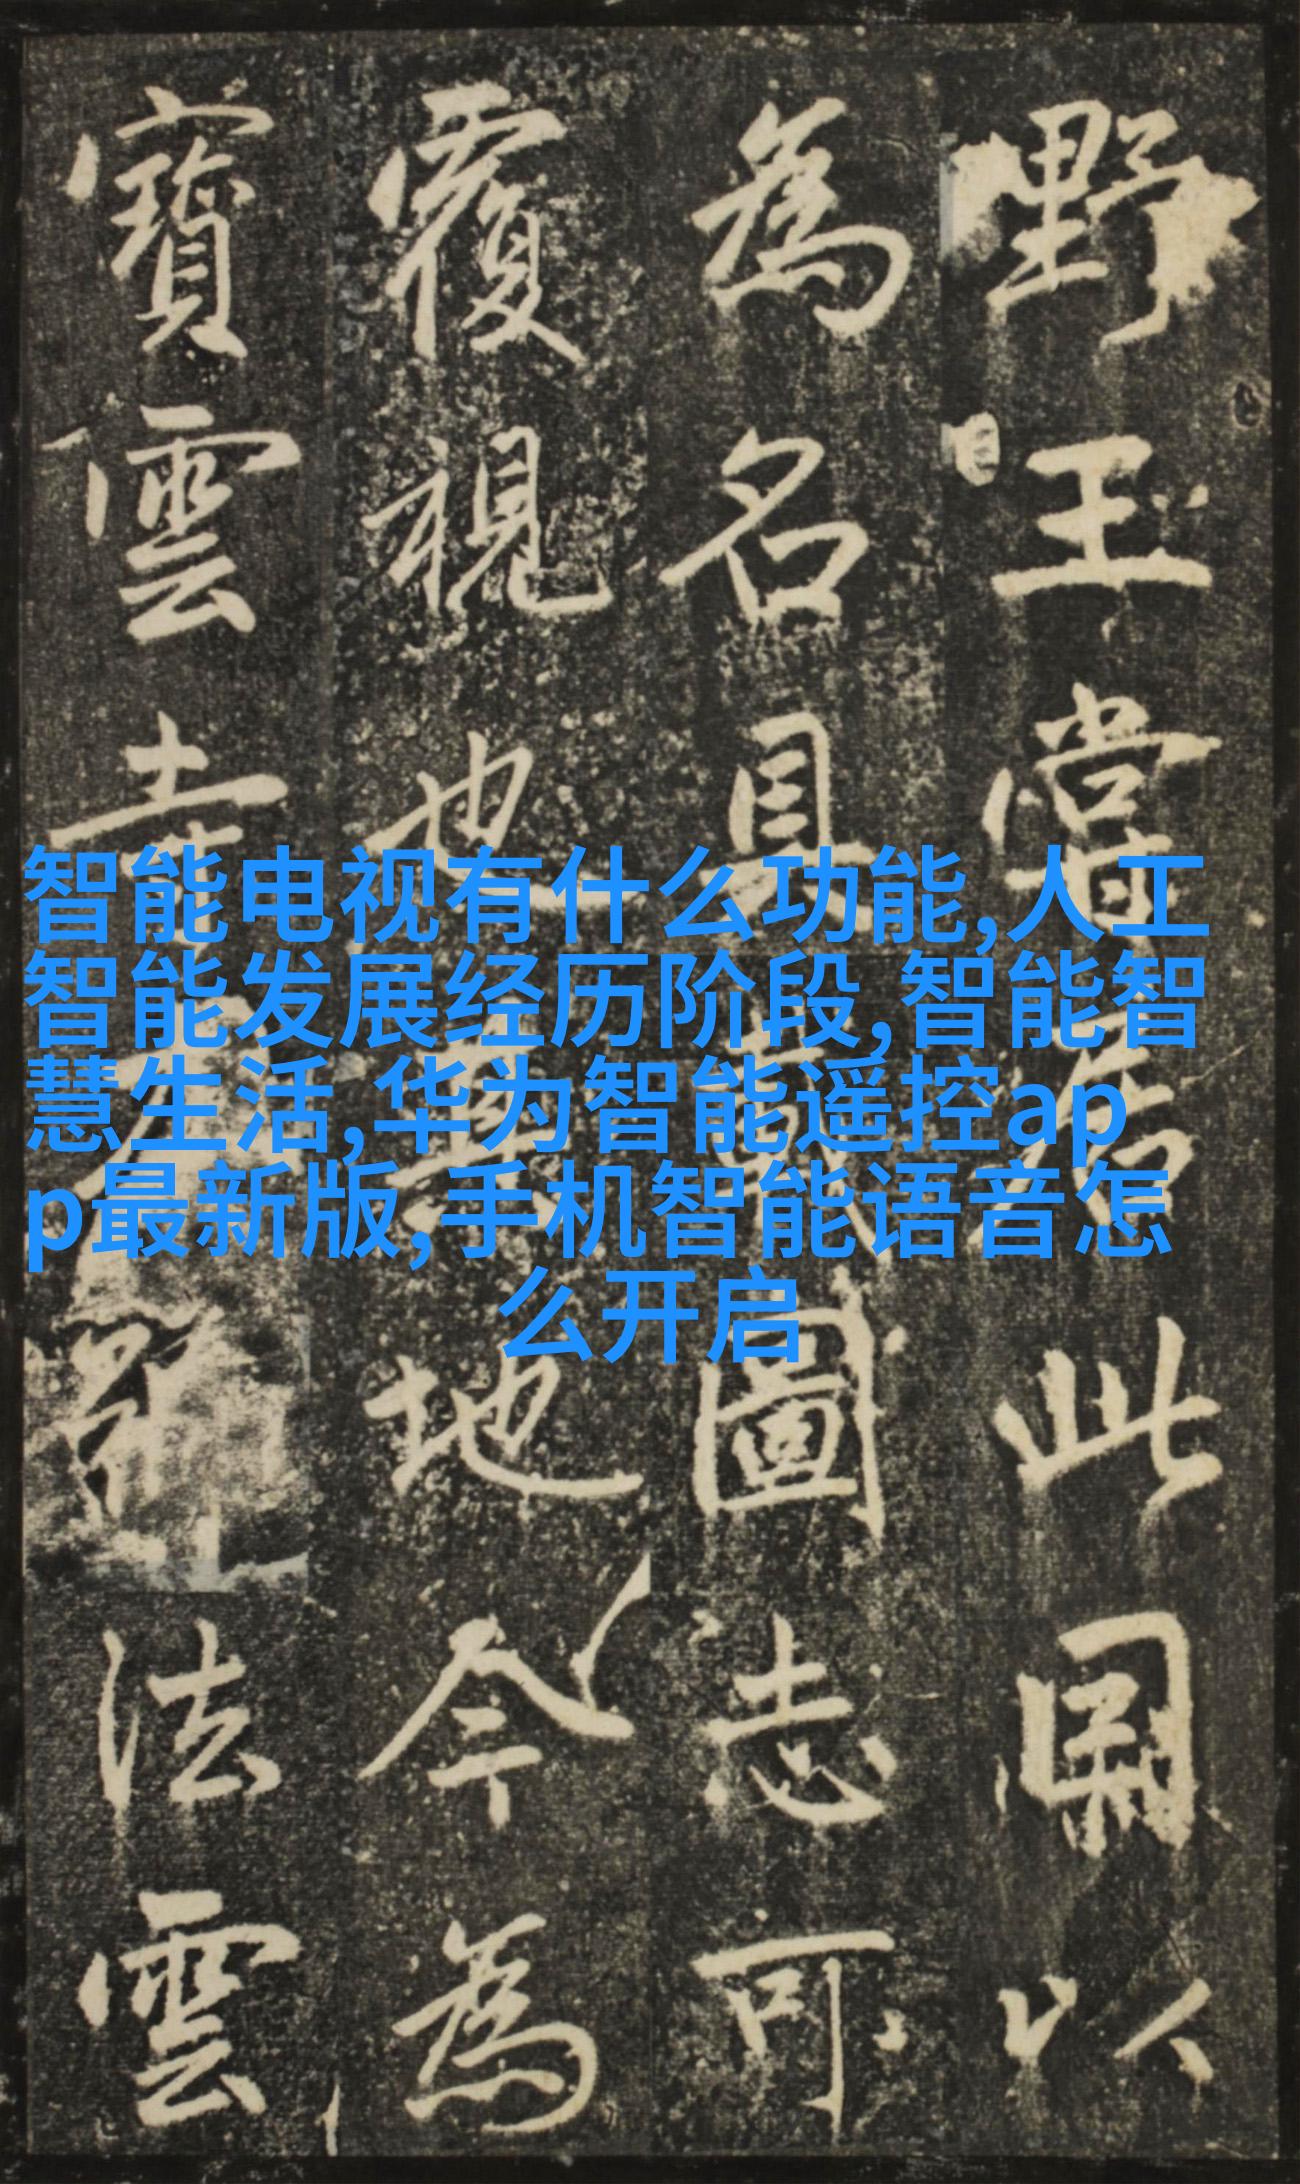 野王嘗此以
為名具載圖志可
覆視也其地今為
寶雲寺法雲
智能电视有什么功能,人工
智能发展经历阶段,智能智
慧生活,华为智能遥控ap
p最新版,手机智能语音怎
么开启